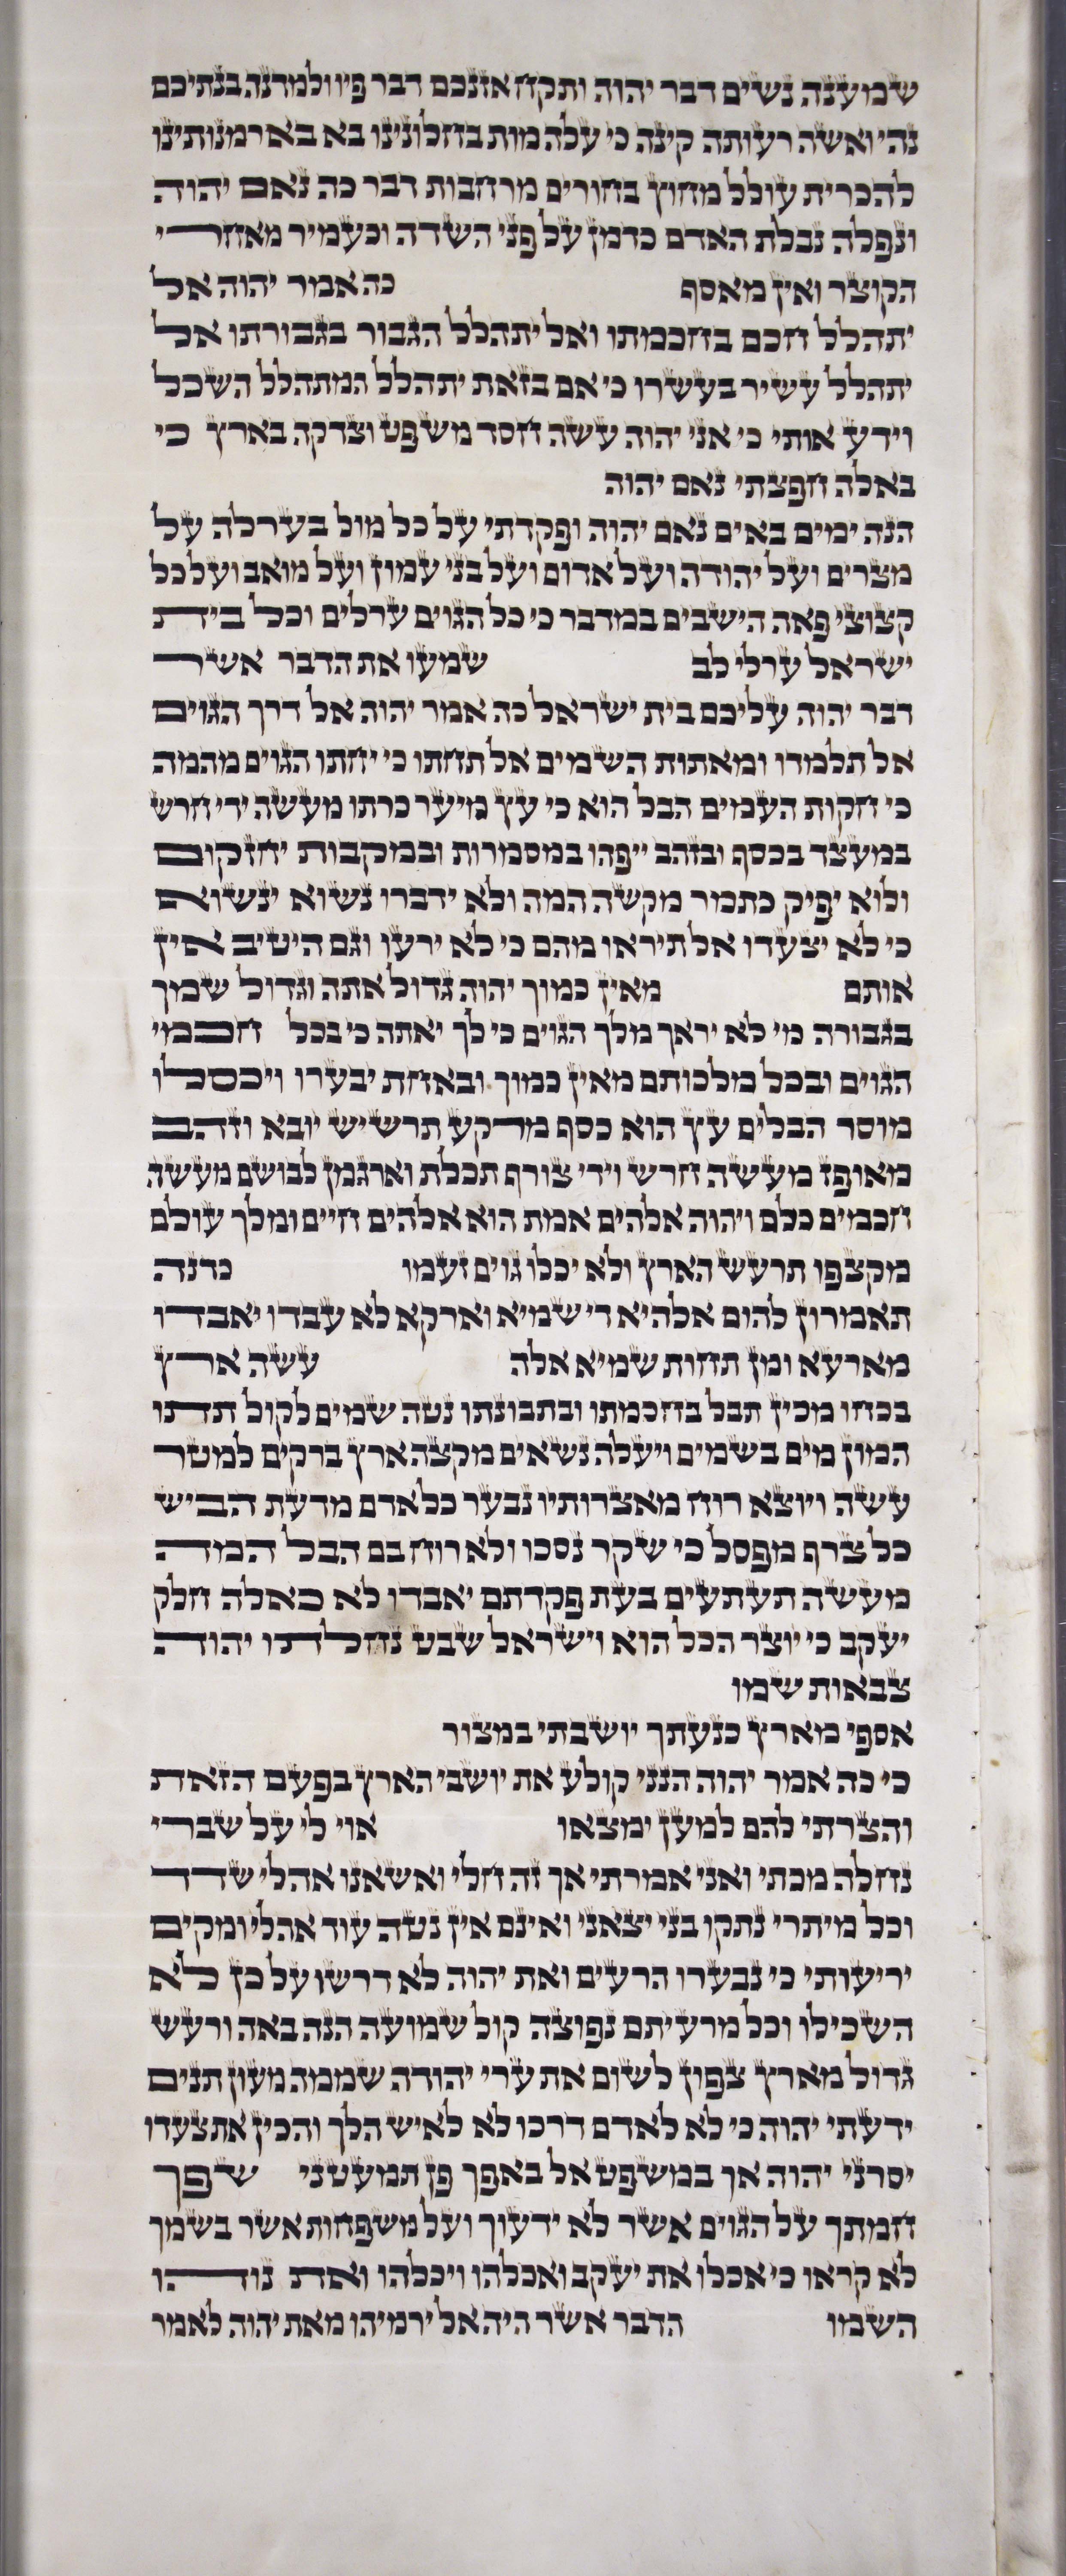 שמענה נשים דבר יהוה ותקח אזנכם דבר פיו ולמדנה בנתיכם
נהי ואשה רעותה קינה כי עלה מות בחלונינו בא בארמנותינו
להכרית עולל מחוץ בחורים מרחבות דבר כה נאם יהוה
ונפלה נבלת האדם כדמן על פני השדה וכעמיר מאחרי
הקוצר ואין מאסף כה אמר יהוה אל
יתהלל חכם בחכמתו ואל יתהלל הגבור בגבורתו אל
יתהלל עשיר בעשרו כי אם בזאת יתהלל המתהלל השכל
וידע אותי כי אני יהוה עשה חסד משפט וצדקה בארץ כי
באלה חפצתי נאם יהוה
הנה ימים באים נאם יהוה ופקדתי על כל מול בערלה על
מצרים ועל יהודה ועל אדום ועל בני עמון ועל מואב ועל כל
קצוצי פאה הישבים במדבר כי כל הגוים ערלים וכל בית
ישראל ערלי לב שמעו את הדבר אשר
דבר יהוה עליכם בית ישראל כה אמר יהוה אל דרך הגוים
אל תלמדו ומאתות השמים אל תחתו כי יחתו הגוים מהמה
כי חקות העמים הבל הוא כי עץ מיער כרתו מעשה ידי חרש
במעצד בכסף ובזהב ייפהו במסמרות ובמקבות יחזקום
ולוא יפיק כתמר מקשה המה ולא ידברו נשוא ינשוא
כי לא יצעדו אל תיראו מהם כי לא ירעו וגם היטיב אין
אותם מאין כמוך יהוה גדול אתה וגדול שמך
בגבורה מי לא יראך מלך הגוים כי לך יאתה כי בכל חכמי
הגוים ובכל מלכותם מאין כמוך ובאחת יבערו ויכסלו
מוסר הבלים עץ הוא כסף מרקע תרשיש יובא וזהב
מאופז מעשה חרש וידי צורף תכלת וארגמן לבושם מעשה
חכמים כלם ויהוה אלהים אמת הוא אלהים חיים ומלך עולם
מקצפו תרעש הארץ ולא יכלו גוים זעמו כדנה
תאמרון להום אלהיא די שמיא וארקא לא עבדו יאבדו
מארעא ומן תחות שמיא אלה עשה ארץ
בכחו מכין תבל בחכמתו ובתבונתו נטה שמים לקול תתו
המון מים בשמים ויעלה נשאים מקצה ארץ ברקים למטר
עשה ויוצא רוח מאצרותיו נבער כל אדם מדעת הביש
כל צרף מפסל כי שקר נסכו ולא רוח בם הבל המה
מעשה תעתעים בעת פקדתם יאבדו לא כאלה חלק
יעקב כי יוצר הכל הוא וישראל שבט נחלתו יהוה
צבאות שמו
אספי מארץ כנעתך יושבתי במצור
כי כה אמר יהוה הנני קולע את יושבי הארץ בפעם הזאת
והצרתי להם למען ימצאו אוי לי על שברי
נחלה מכתי ואני אמרתי אך זה חלי ואשאנו אהלי שדד
וכל מיתרי נתקו בני יצאני ואינם אין נטה עוד אהלי ומקים
יריעותי כי נבערו הרעים ואת יהוה לא דרשו על כן לא
השכילו וכל מרעיתם נפוצה קול שמועה הנה באה ורעש
גדול מארץ צפון לשום את ערי יהודה שממה מעון תנים
ידעתי יהוה כי לא לאדם דרכו לא לאיש הלך והכין את צעדו
יסרני יהוה אך במשפט אל באפך פן תמעטני שפך
חמתך על הגוים אשר לא ידעוך ועל משפחות אשר בשמך
לא קראו כי אכלו את יעקב ואכלהו ויכלהו ואת נוהו
השמו הדבר אשר היה אל ירמיהו מאת יהוה לאמר